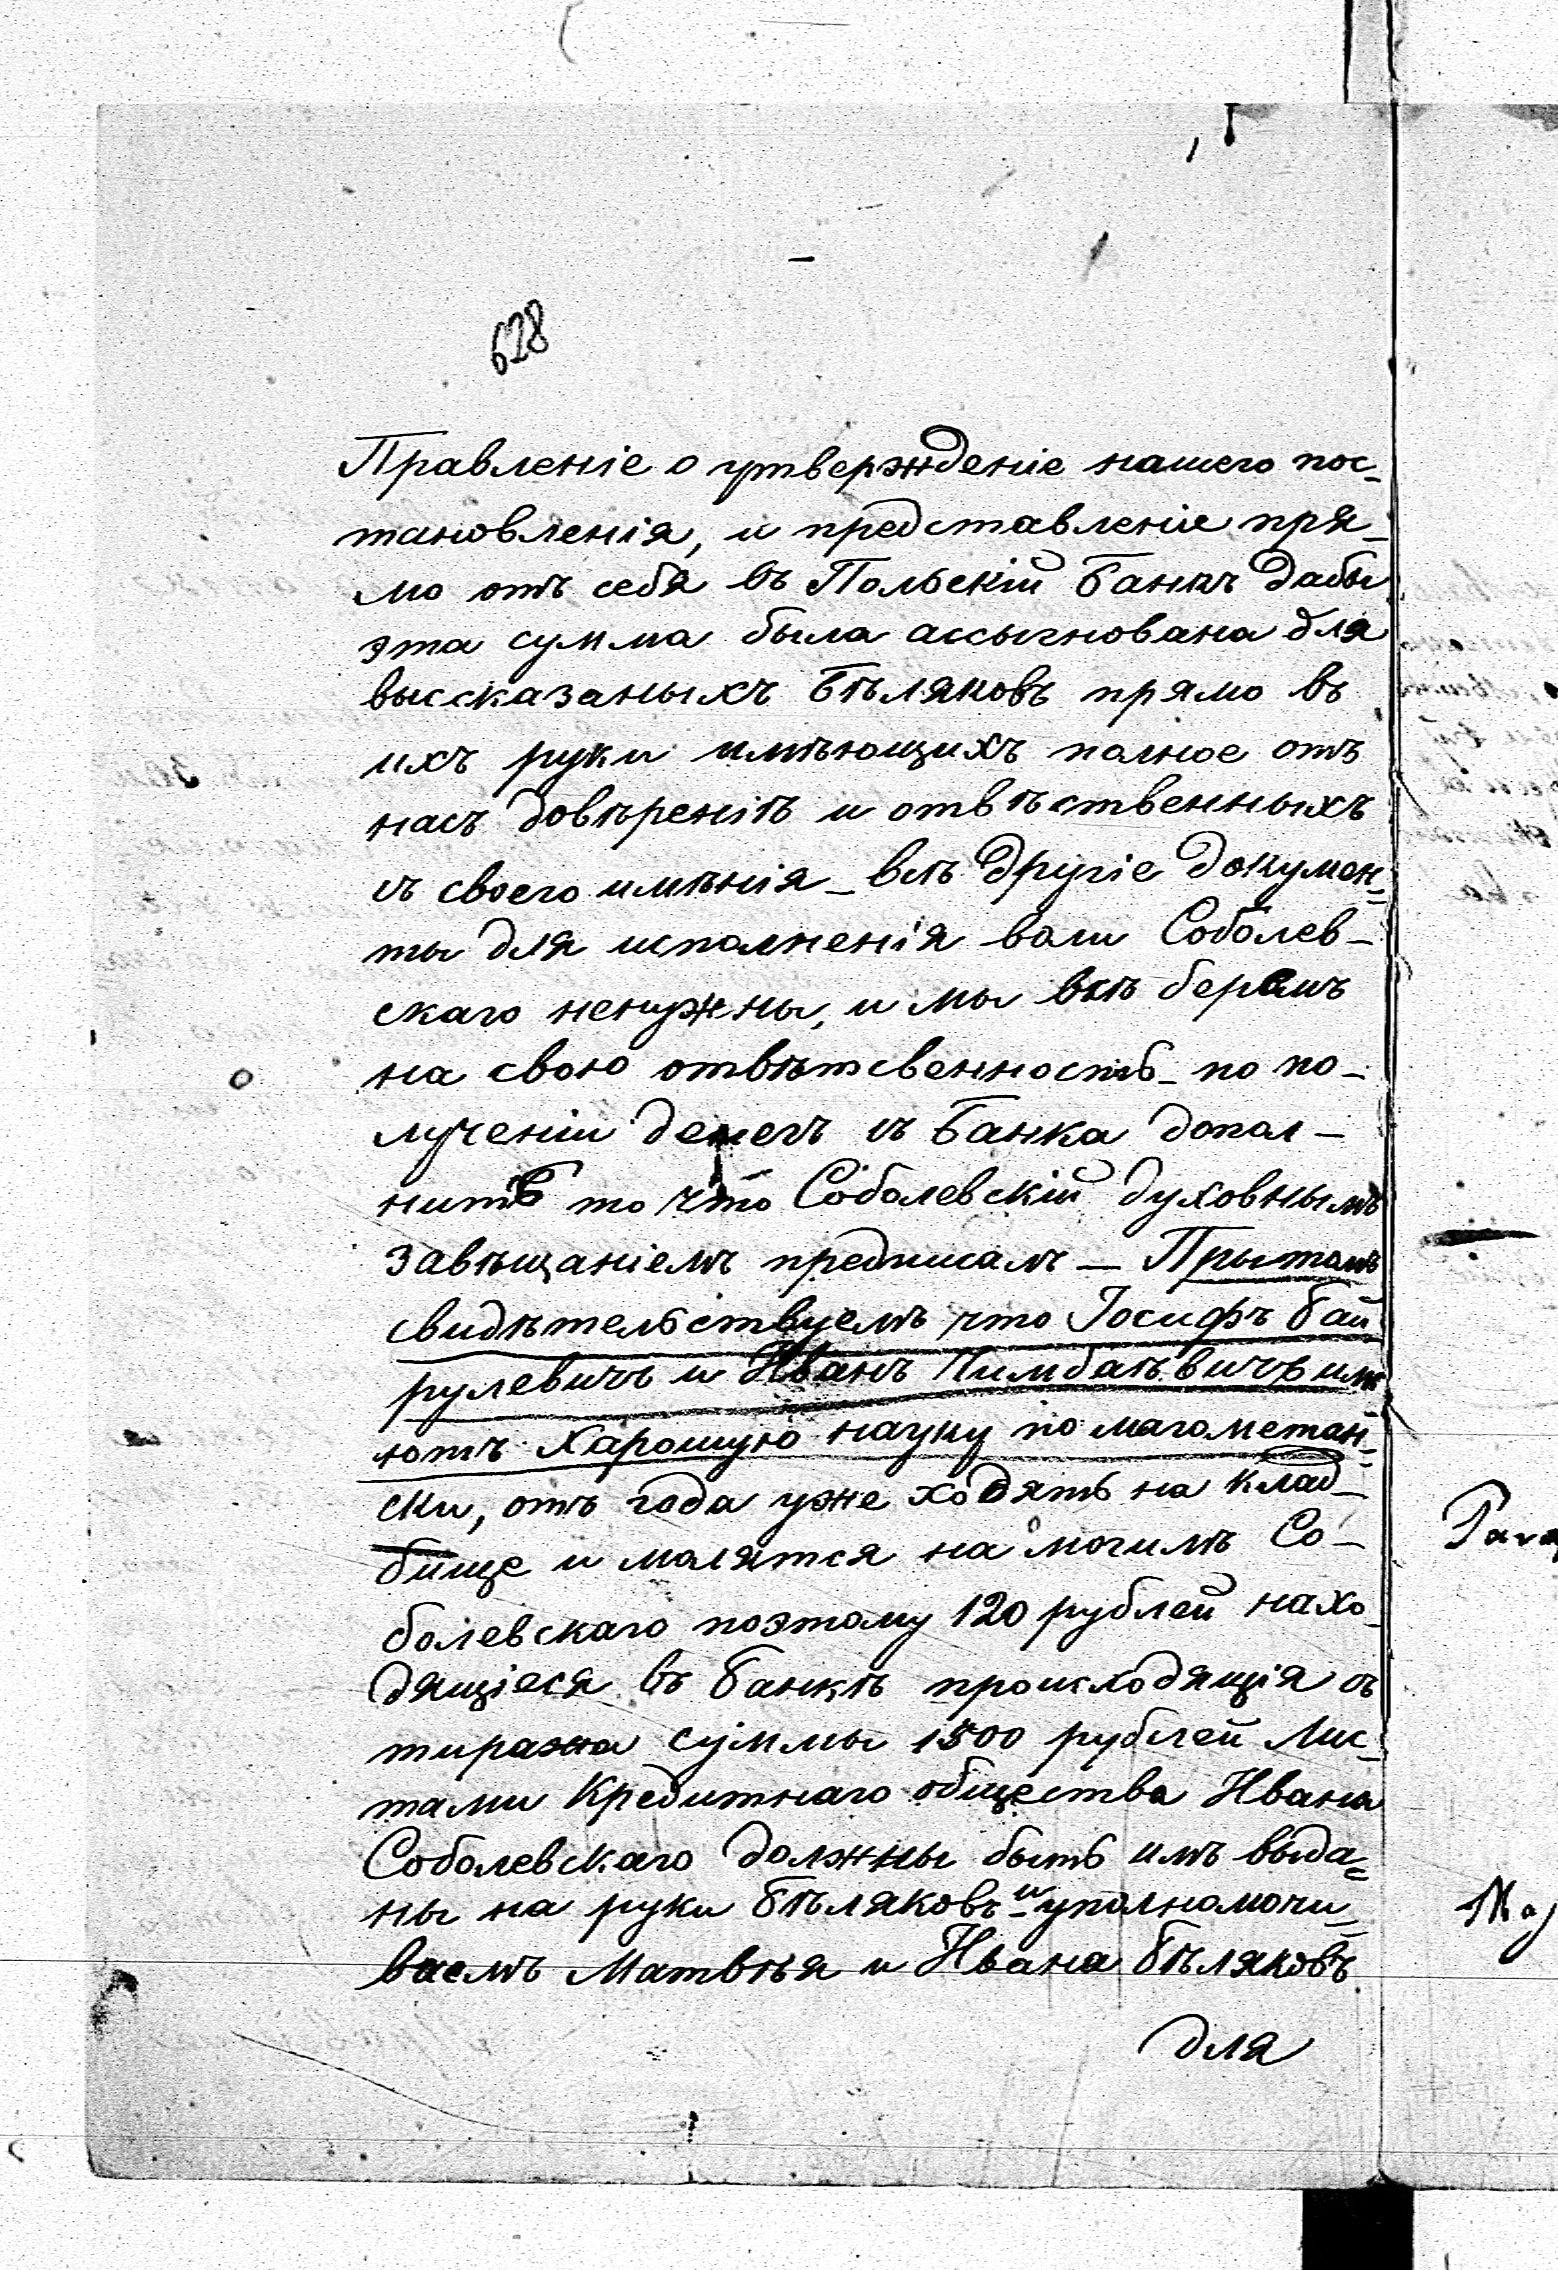 628
Правленіе о утвержденіе нашего пос-
тановленія, и представленіе пря-
мо отъ себя въ Польскій Банкъ дабы
эта сумма была ассыгнована для
высказаныхъ Бѣляковъ прямо въ
ихъ руки имѣющихъ полное отъ
насъ довѣреніѣ и отвѣственныхъ
съ своего имѣнія - всѣ другіе докумен-
ты для исполненія воли Соболев-
скаго ненужны, и мы всѣ беремъ
на свою отвѣтсвенность - по по-
лученіи денегъ съ Банка допол-
нить то что Соболевскій духовнымъ
завѣщаніемъ предписалъ — Прытомъ
свидѣтельствуемъ что Іосифъ Бай
рулевичъ и Иванъ Лимбаѣвичъ имѣ
ютъ харошую науку по магометан-
ски, отъ года уже ходятъ на клад-
бище и молятся на могилѣ Со-
болевскаго поэтому 120 рублей нахо-
дящіеся въ банкѣ происходящія съ
тиража суммы 1500 рублей Лис-
тами Кредитнаго общества Ивана
Соболевскаго должны быть имъ выда-
ны на руки Бѣляковъ и уполномочи-
ваемъ Матвѣя и Ивана Бѣляковъ
для